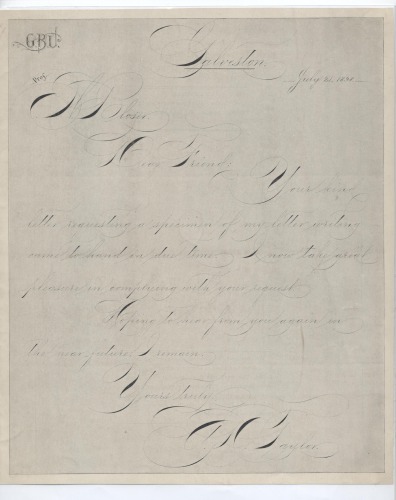 G.B.U.
Galveston.
July
Prof.
Dear Friend:
Your kind
letter requesting a specimen of my letter writing
came to hand in due time. I now take great
pleasure in complying with your request.
Hoping to hear from you again in
the near future, I remain.
Yours truly
Taylor.